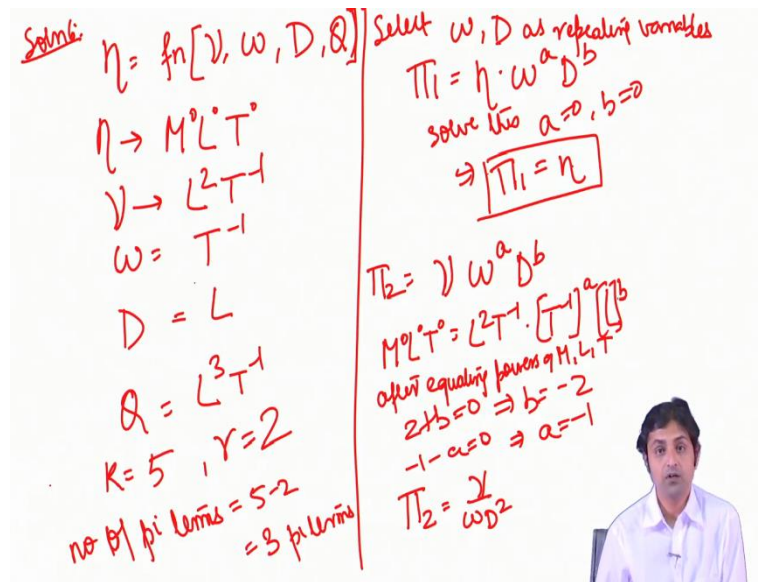 Soln:
η = fn[ν, ω, D, Q]
η → M⁰L⁰T⁰
ν → L²T⁻¹
ω = T⁻¹
D = L
Q = L³T⁻¹
K = 5 , r = 2
no of pi terms = 5-2
= 3 pi terms
Select ω, D as repeating variables
Π₁ = η · ω^a D^b
solve this a=0, b=0
⇒ Π₁ = η
Π₂ = ν ω^a D^b
M⁰L⁰T⁰ = L²T⁻¹ · [T⁻¹]^a [L]^b
after equaling powers of M, L, T
2+b=0 ⇒ b=-2
-1-a=0 ⇒ a=-1
Π₂ = ν/ωD²